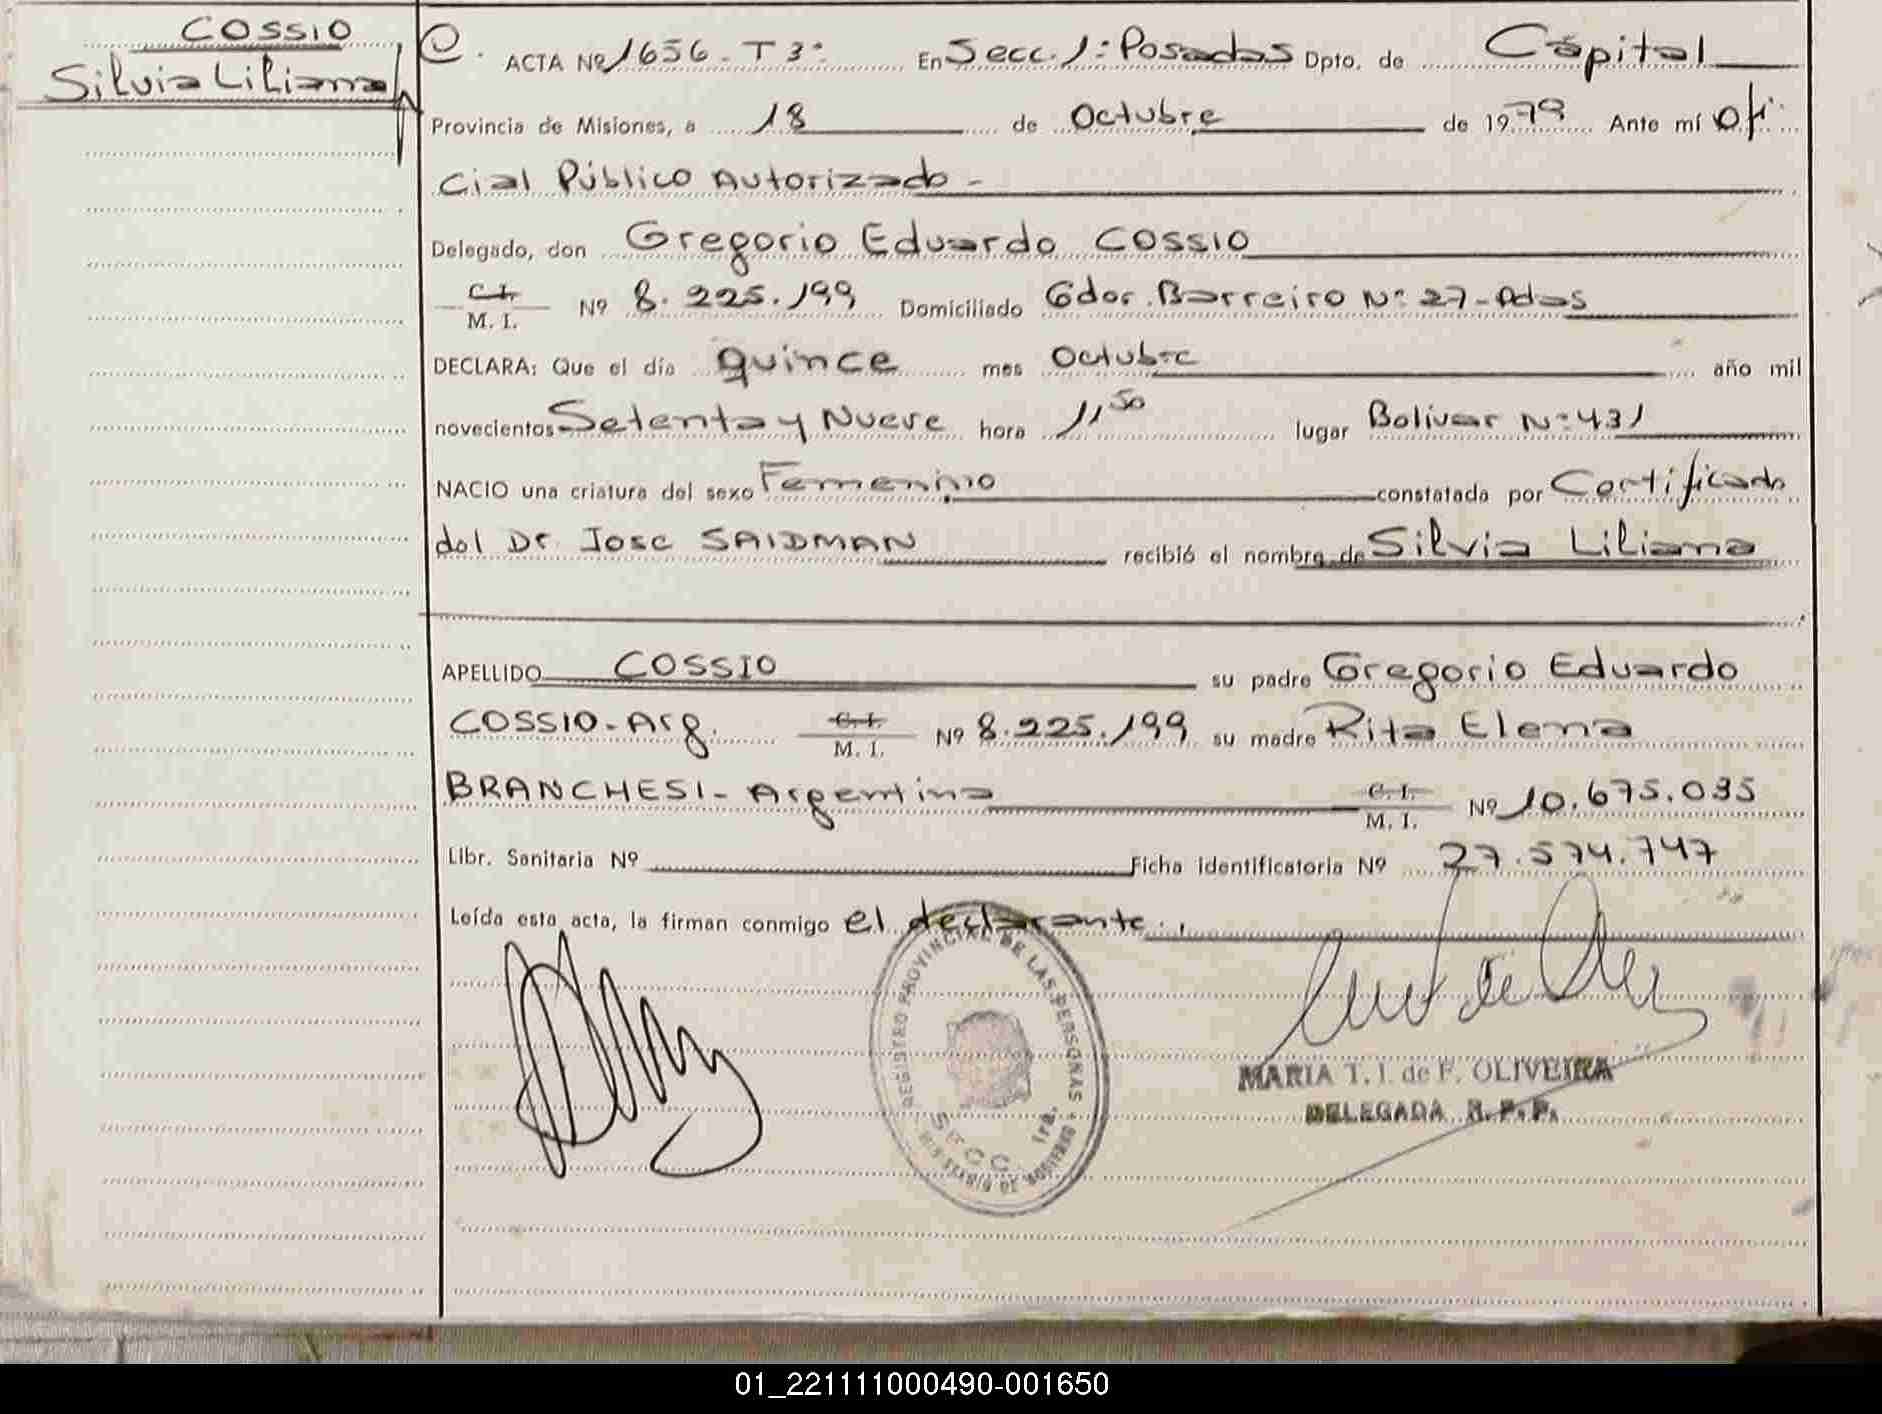 COSSIO
Silvia Liliana
ACTA Nº 1656 - T 3º En Secc. 1º Posadas Dpto. de Capital
Provincia de Misiones, a 18 de Octubre de 1979 Ante mí Ofi-
cial Público Autorizado -
Delegado, don Gregorio Eduardo COSSIO
C.I.
M. I. Nº 8.225.199 Domiciliado Gdor. Barreiro Nº 27 - Pdas
DECLARA: Que el día quince mes Octubre año mil
novecientos Setenta y Nueve hora 11 50 lugar Bolivar Nº 431
NACIO una criatura del sexo Femenino constatada por Certificado
del Dr Jose SAIDMAN recibió el nombre de Silvia Liliana
APELLIDO COSSIO su padre Gregorio Eduardo
COSSIO - Arg. C.I. M. I. Nº 8.225.199 su madre Rita Elena
BRANCHESI - Argentina C.I. M. I. Nº 10.675.035
Libr. Sanitaria Nº Ficha identificatoria Nº 27.574.747
Leída esta acta, la firman conmigo el declarante.
REGISTRO PROVINCIAL DE LAS PERSONAS
SECC. 1ra.
MARIA T. I. de F. OLIVEIRA
DELEGADA R. P. P.
01_221111000490-001650